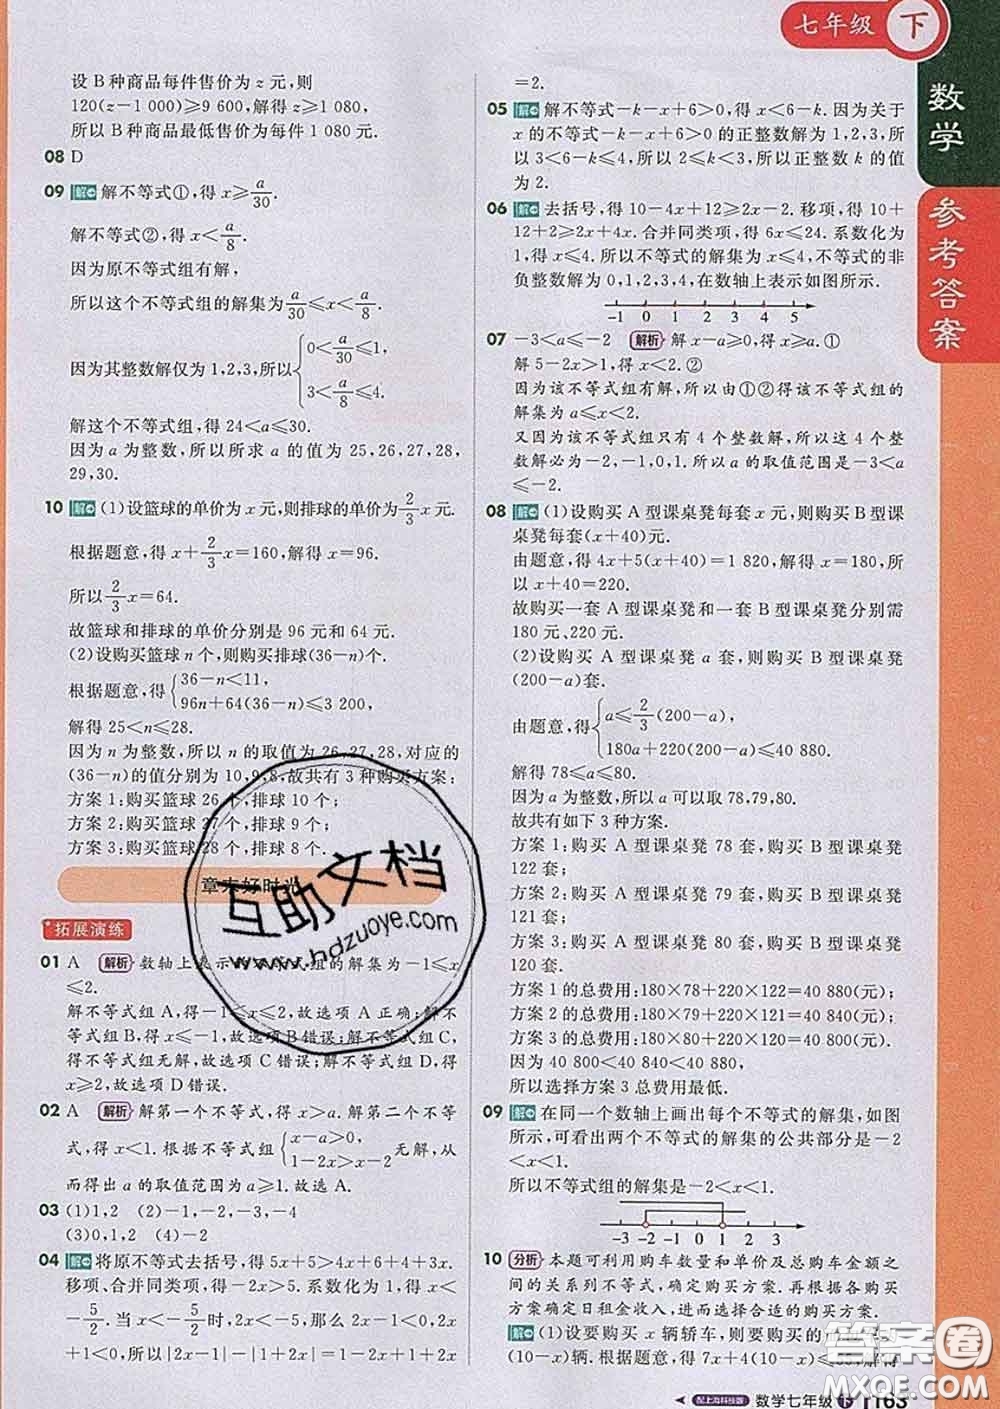 七年级 下
数学
参考答案
设B种商品每件售价为z元,则
120(z-1 000)≥9 600,解得z≥1 080,
所以B种商品最低售价为每件1 080元.
08 D
09 解 解不等式①,得x≥a/30.
解不等式②,得x<a/8.
因为原不等式组有解,
所以这个不等式组的解集为a/30≤x<a/8.
因为其整数解仅为1,2,3,所以{0<a/30≤1,
3<a/8≤4.
解这个不等式组,得24<a≤30.
因为a为整数,所以所求a的值为25,26,27,28,
29,30.
10 解 (1)设篮球的单价为x元,则排球的单价为2/3x元.
根据题意,得x+2/3x=160,解得x=96.
所以2/3x=64.
故篮球和排球的单价分别是96元和64元.
(2)设购买篮球n个,则购买排球(36-n)个.
根据题意,得{36-n<11,
96n+64(36-n)≤3 200,
解得25<n≤28.
因为n为整数,所以n的取值为26,27,28,对应的
(36-n)的值分别为10,9,8,故共有3种购买方案:
方案1:购买篮球26个,排球10个;
方案2:购买篮球27个,排球9个;
方案3:购买篮球28个,排球8个.
章末好时光
*拓展演练
01 A 解析 数轴上表示的组的解集为-1≤x
≤2.
解不等式组A,得-1≤x≤2,故选项A正确;解不
等式组B,得x≤-1,故选项B错误;解不等式组C,
得不等式组无解,故选项C错误;解不等式组D,得
x≥2,故选项D错误.
02 A 解析 解第一个不等式,得x>a.解第二个不等
式,得x<1.根据不等式组{x-a>0,
1-2x>x-2无解,从
而得出a的取值范围是a≥1.故选A.
03 (1)1,2 (2)-1,-2,-3,-4
(3)0,1,2 (4)-2
04 解 将原不等式去括号,得5x+5>4x+6+4+3x.
移项、合并同类项,得-2x>5.系数化为1,得x<
-5/2.当x<-5/2时,2x<-5<0,2x-1<0,2x
+1<0,所以|2x-1|-|1+2x|=1-2x+1+2x
=2.
05 解 解不等式-k-x+6>0,得x<6-k.因为关于
x的不等式-k-x+6>0的正整数解为1,2,3,所
以3<6-k≤4,所以2≤k<3,所以正整数k的值
为2.
06 解 去括号,得10-4x+12≥2x-2.移项,得10+
12+2≥2x+4x.合并同类项,得6x≤24.系数化为
1,得x≤4.所以不等式的解集为x≤4,不等式的非
负整数解为0,1,2,3,4,在数轴上表示如图所示.
-1 0 1 2 3 4 5
07 -3<a≤-2 解析 解x-a≥0,得x≥a.①
解5-2x>1,得x<2.②
因为该不等式组有解,所以由①②得该不等式组的
解集为a≤x<2.
又因为该不等式组只有4个整数解,所以这4个整
数解必为-2,-1,0,1.所以a的取值范围是-3<a
≤-2.
08 解 (1)设购买A型课桌凳每套x元,则购买B型课
桌凳每套(x+40)元.
由题意,得4x+5(x+40)=1 820,解得x=180,所
以x+40=220.
故购买一套A型课桌凳和一套B型课桌凳分别需
180元、220元.
(2)设购买A型课桌凳a套,则购买B型课桌凳
(200-a)套.
由题意,得{a≤2/3(200-a),
180a+220(200-a)≤40 880,
解得78≤a≤80.
因为a为整数,所以a可以取78,79,80.
故共有如下3种方案.
方案1:购买A型课桌凳78套,购买B型课桌凳
122套;
方案2:购买A型课桌凳79套,购买B型课桌凳
121套;
方案3:购买A型课桌凳80套,购买B型课桌凳
120套.
方案1的总费用:180×78+220×122=40 880(元);
方案2的总费用:180×79+220×121=40 840(元);
方案3的总费用:180×80+220×120=40 800(元);
因为40 800<40 840<40 880,
所以选择方案3总费用最低.
09 解 在同一个数轴上画出每个不等式的解集,如图
所示,可看出两个不等式的解集的公共部分是-2
<x<1.
所以不等式组的解集是-2<x<1.
-3 -2 -1 0 1 2 3
10 分析 本题可利用购车数量和单价及总购车金额之
间的关系列不等式,确定购买方案.再根据各购买
方案确定日租金收入,进而选择合适的购买方案.
解 (1)设要购买x辆轿车,则要购买的
(10-x)辆.根据题意,得7x+4(10-x)≤55,解得
配上海科技版 数学七年级 下 163
互助文档
www.hdzuoye.com
答案圈
MXQE.COM